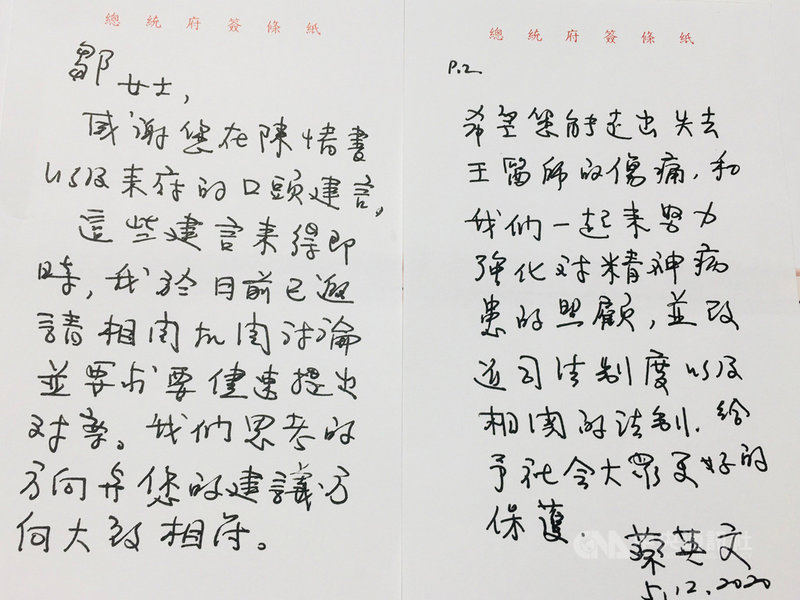 總統府簽條紙
鄒女士，
感謝您在陳情書
以及来府的口頭建言，
這些建言来得即
時，我於目前已邀
請相関机関討論
並要求要儘速提出
对案。我们思考的
方向与您的建議方
向大致相符。
總統府簽條紙
P.2
希望您能走出失去
王醫師的傷痛，和
我们一起来努力
強化对精神病
患的照顧，並改
進司法制度以及
相関的法制，給
予社会大眾更好的
保護。
蔡英文
5.12.2020
CNA